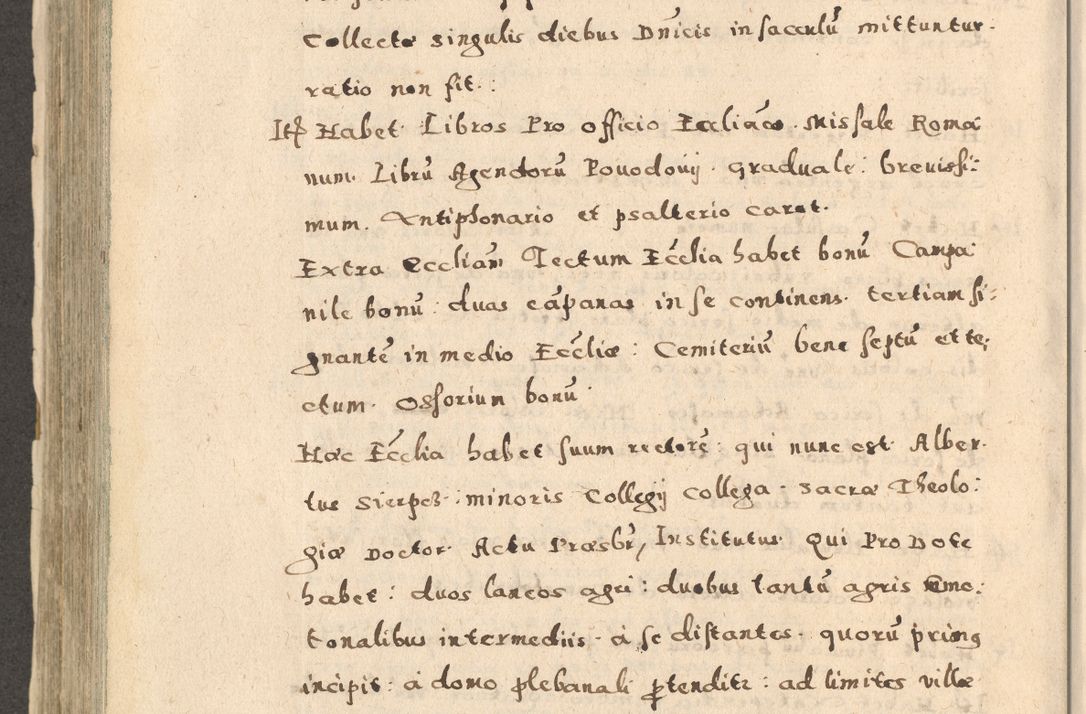 Collectæ singulis diebus Dnĩcis in sacculũ mittuntur.
ratio non fit.
Itẽ Habet Libros Pro officio Eccliãco. Missale Roma
num. Librũ Agendorũ Povodovij. Graduale: brevissi:
mum. Antiphonario et psalterio caret.
Extra Eccliam̃ Tectum Ecc̃lia habet bonũ Campa
nile bonũ: duas cãpanas in se continens. tertiam si:
gnantẽ in medio Ecc̃liæ: Cemiteriũ bene septũ et te:
ctum. Ossorium bonũ.
Hæc Ecc̃lia habet suum rectorẽ. qui nunc est Alber.
tus Sierpcz: minoris Collegij Collega. Sacræ Theolo:
giæ Doctor. Actu Præsbr̃, Institutus. Qui Pro Dote
habet: duos laneos agri: duobus tantũ agris cme:
tonalibus intermediis. à se distantes. quorũ primꝰ
incipit: a domo plebanali ꝓtenditr: ad limites villæ